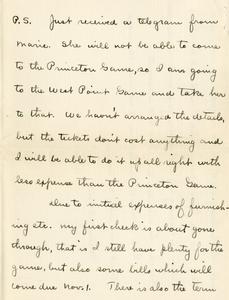 P.S. Just received a telegram from
Marie. She will not be able to come
to the Princeton Game, so I am going
to the West Point Game and take her
to that. We haven't arranged the details,
but the tickets don't cost anything and
I will be able to do it up all right with
less expense than the Princeton Game.
Due to initial expenses of furnish-
ing etc. my first check is about gone
through, that is I still have plenty for the
game, but also some bills which will
come due Nov. 1. There is also the term